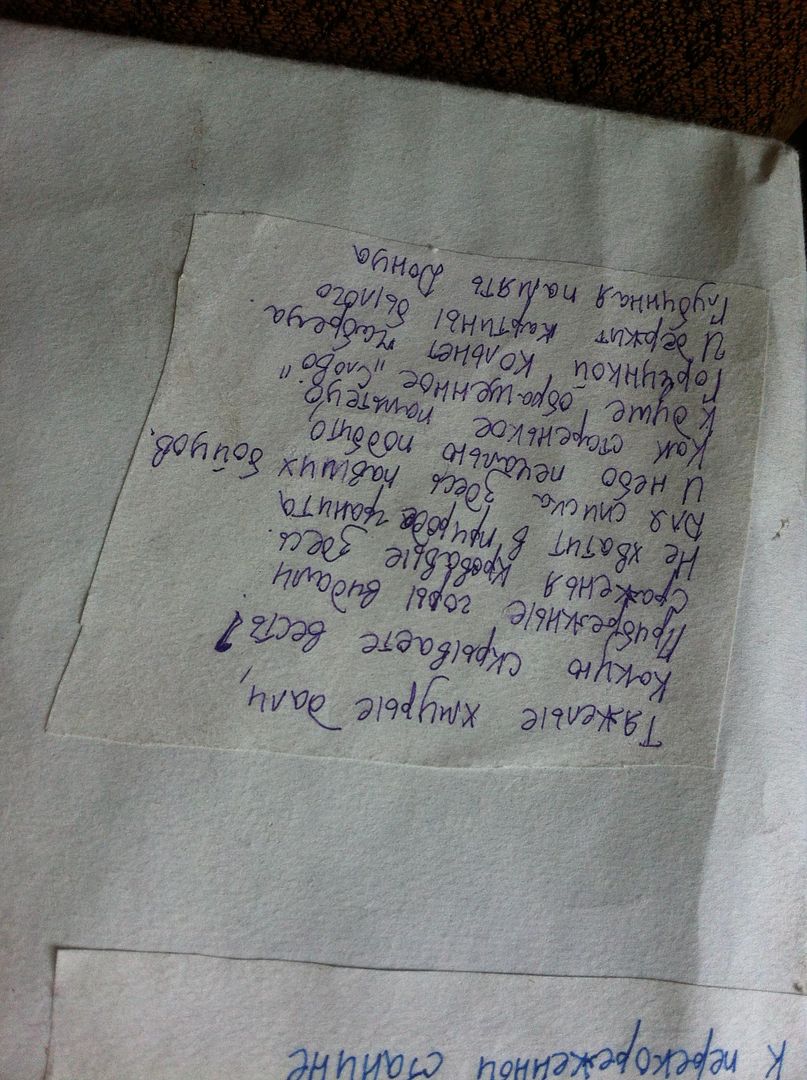 Тяжелые хмурые дали,
Какую скрываете весть?
Прибрежные горы видали
Сраженья кровавые здесь.
Не хватит в природе гранита
Для списка здесь павших бойцов.
И небо печалью подбито
Как старенькое пальтецо.
К душе обращенное "слово"
Горчинкой кольнет чабреца.
И держит картины былого
Глубинная память Донца
К перекореженной станине